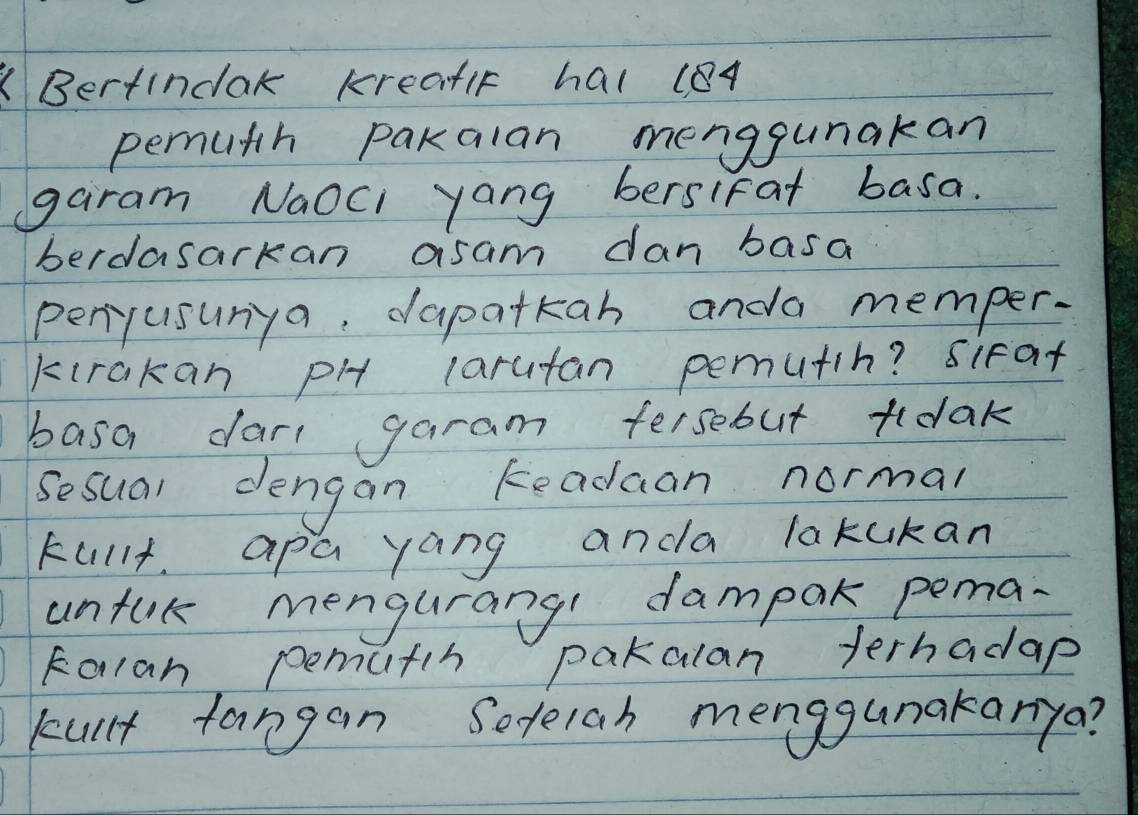 Bertindak kreatif hal 184
pemutih pakaian menggunakan
garam NaOCl yang bersifat basa.
berdasarkan asam dan basa
penyusunya, dapatkah anda memper-
kirakan pH larutan pemutih? sifat
basa dari garam tersebut tidak
sesuai dengan keadaan normal
kulit. apa yang anda lakukan
untuk mengurangi dampak pema-
kaian pemutih pakaian terhadap
kulit tangan setelah menggunakanya?